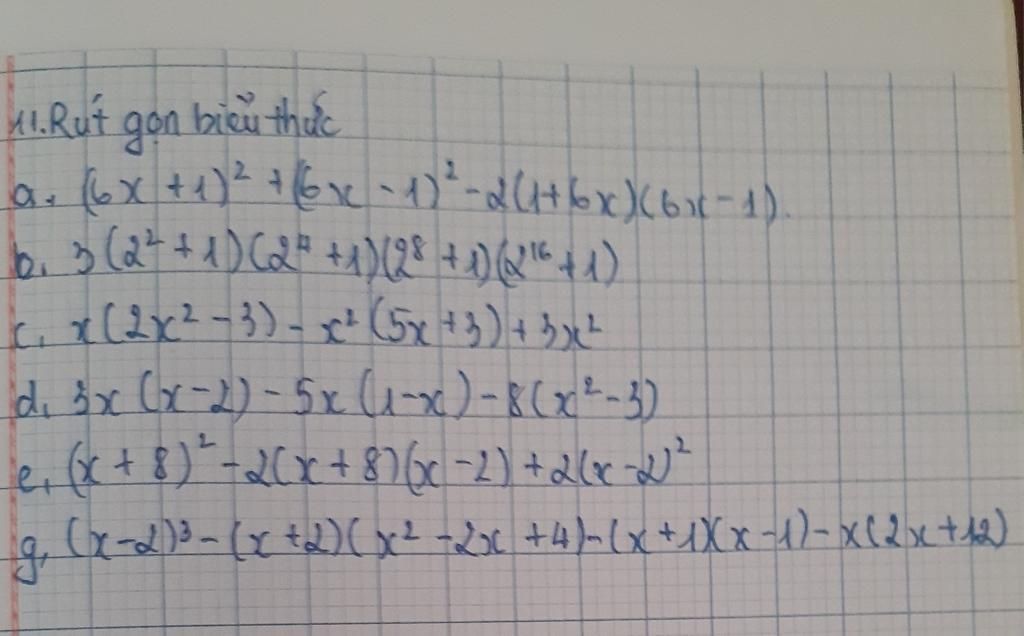 11. Rút gọn biểu thức
a, (6x + 1)² + (6x - 1)² - 2(1 + 6x)(6x - 1).
b, 3(2² + 1)(2⁴ + 1)(2⁸ + 1)(2¹⁶ + 1)
c, x(2x² - 3) - x²(5x + 3) + 3x²
d, 3x(x - 2) - 5x(1 - x) - 8(x² - 3)
e, (x + 8)² - 2(x + 8)(x - 2) + 2(x - 2)²
g, (x - 2)³ - (x + 2)(x² - 2x + 4) - (x + 1)(x - 1) - x(2x + 12)